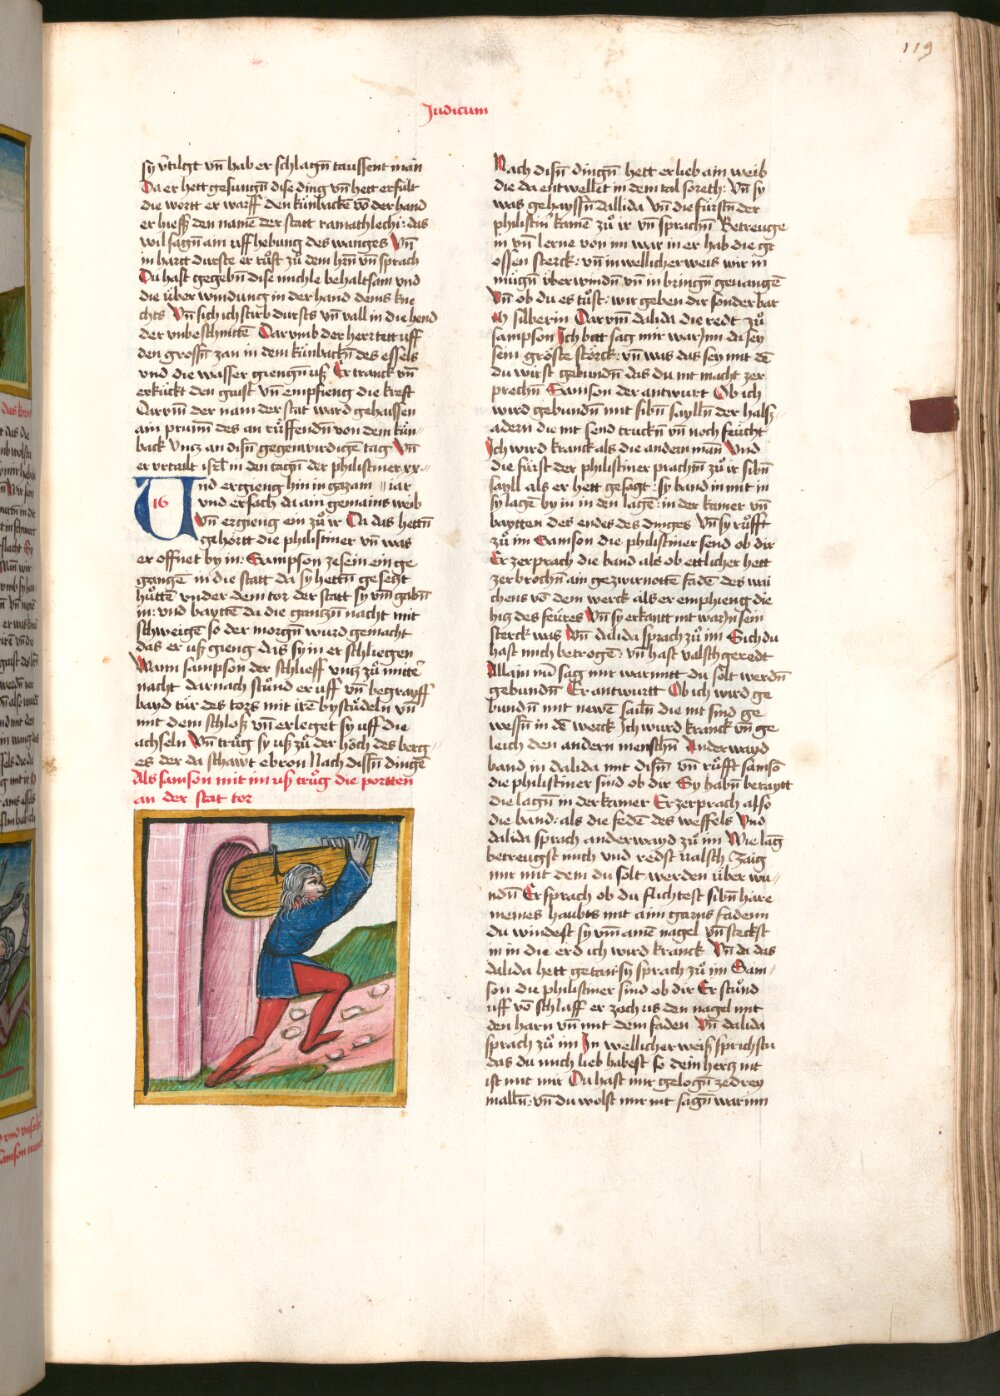 119
Judicum
sy v̄tilgt vn̄ hab er schlagn̄ taussent man
Da er hett gesungn̄ dise ding vn̄ hett erfült
die wortt er warff den künbacke vō der hand
er hiess den namē der statt ramathlechi : das
wil sagn̄ am uff hebung des wanges Vn̄
in hartt durste er růft zů dem hrn̄ vn̄ sprach
Du hast gegebn̄ dise michle behaltsam und
die über windung in der hand deins kne
chts Vn̄ sich ich stirb dursts vn̄ vall in die hend
der vnbeschnittē Darumb der herr tett uff
den grossn̄ zan in dem künbackn̄ des essels
vnd die wasser giengn̄ uß Er tranck vn̄
erkückt den guist vn̄ empfieng die kreft
Darvm̄ der nam der stat ward gehaissen
ain prunn des an rüffendn̄ von dem kün
back Vncz an disn̄ gegenwirdigē tag Vn̄
er vrtailt isrl̄ in den tagn̄ der philistiner xx
16 Und ergieng hin in gazam iar
vnd ersach da ain gemains weib
Vn̄ er gieng ein zů ir Da das hettn̄
gehörtt die philistiner vn̄ was
er offnet by in : Sampson ze sein ein ge
gangē in die statt da sy hettn̄ gesetzt
hůttē vnder dem tor der statt sy vm̄ gabn̄
in : vnd bayttē da die gantzn̄ nacht mit
schweigē so der morgn̄ wurd gemacht
das er uß gieng das sy in er schliegen
Wann sampson der schlieff vntz zů mittē
nacht darnach stůnd er uff vn̄ begrayff
bayd tür des tors mit irē bystüdeln vn̄
mit dem schloß vn̄ er leget sy uff die
achseln Vn̄ trůg sy uß zů der höch des berg
es der da schawt ebron Nach disn̄ dingē
Als samson mit im uß trůg die portten
an der stat tor
Nach disn̄ dingn̄ hett er lieb ain weib
die da entwellet in dem tal soreth : Vn̄ sy
was gehayssn̄ dallida Vn̄ die fürstn̄ der
philistin̄ kamē zů ir vn̄ sprachn̄ Betreuge
in vn̄ lerne von im war in er hab die gr
ossen sterck : vn̄ in wellicher weis wir in
mügn̄ über windn̄ vn̄ in bringn̄ geuangē
Vn̄ ob du es tůst : wir geben dir sonder bar
silberin Darvm̄ dalida die redt zů
sampson Ich bitt sag mir warinn da sey
sein gröste störck : vn̄ was das sey mit dē
du wirst gebundn̄ das du nit macht zer
prechn̄ Samson der antwurt Ob ich
wird gebundn̄ mit sibn̄ saylln̄ der halß
adern die nit send truckn̄ vn̄ noch feücht
Ich wird kranck als die andern man̄ Vnd
die fürst der philistiner prachn̄ zů ir sibn̄
sayll als er hett gesagt : sy band in mit in
sy lagē by in in den lagē : in der kamer vn̄
baytten des endes des dinges Vn̄ sy růfft
zů im Samson die philistiner send ob dir
Er zerprach die band als ob ettlicher hett
zerbrochn̄ ain gezwirnottē fadē des wü
chens vō dem werck als er emphieng die
hitz des feüres Vn̄ sy erkant nit warin sein
sterck was Vn̄ dalida sprach zů im Sich du
hast mich betrogē : vn̄ hast valsch geredt
Allain nū sag mir warmitt du solt werdn̄
gebundn̄ Er antwurtt Ob ich wird ge
bundn̄ mit newē sailn̄ die nit sind ge
wessn̄ in dē werck Ich wurd kranck vn̄ ge
leich den andern menschn̄ Anderwayd
band in dalida mit disn̄ vn̄ růfft samsō
die philistiner sind ob dir Sy habn̄ beraytt
die lagn̄ in der kamer Er zerprach also
die band : als die fedē des weffels Vnd
dalida sprach anderwayd zů im Wie lāg
betreugst mich vnd redst valsch Zaig
mir mit dem du solt werden über wu
ndn̄ Er sprach ob du flichtest sibn̄ hare
meines haubts mit aim garns fadenn
du windest sy vm̄ amē nagel vn̄ steckst
in in die erd ich wird kranck Vn̄ da das
dalida hett getan sy sprach zů im Sam
son du philistiner sind ob dir Er stůnd
uff vō schlaff er zoch us den nagel mit
den harn vn̄ mit dem faden Vn̄ dalida
sprach zů im In wellicher weiß sprichstu
das du mich lieb habest so dein hertz nit
ist mit mir Du hast mir gelogn̄ ze drey
malln̄ : vn̄ du wolst mir nit sagn̄ warinn